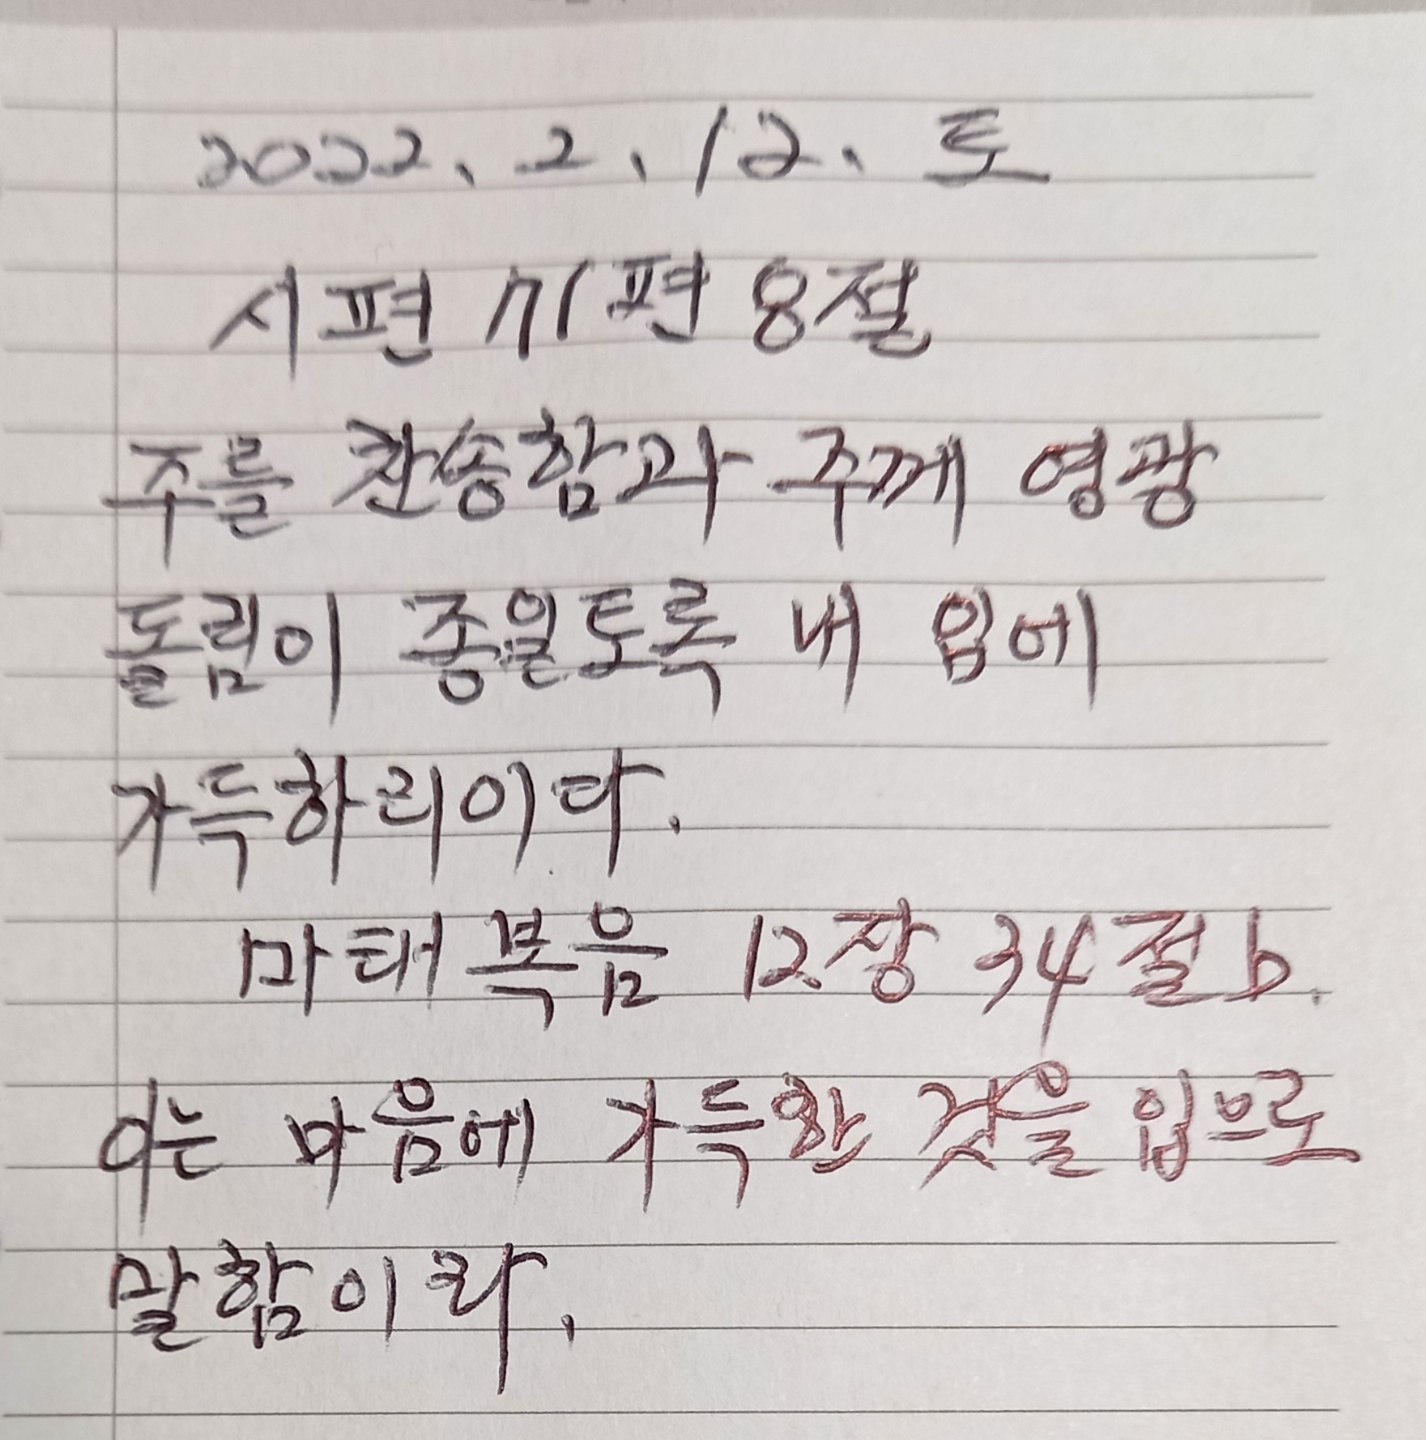 2022. 2. 12. 토
시편 71편 8절
주를 찬송함과 주께 영광
돌림이 종일토록 내 입에
가득하리이다.
마태복음 12장 34절 b.
이는 마음에 가득한 것을 입으로
말함이라.